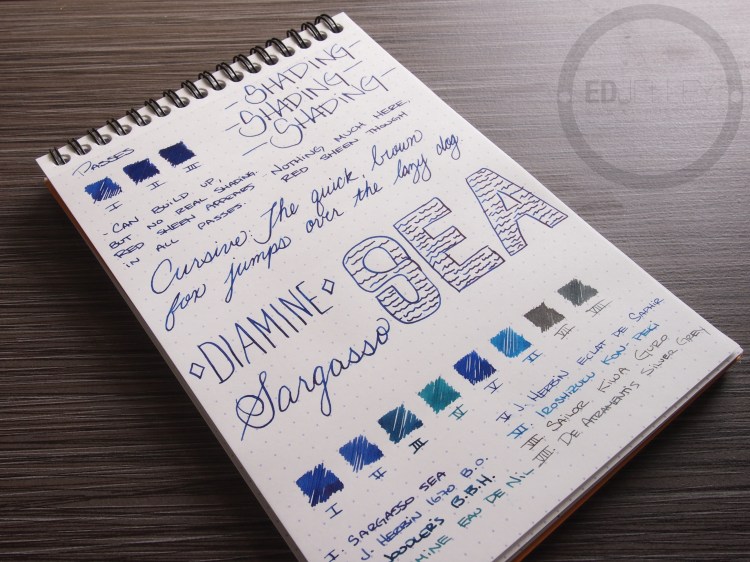 -SHADING-
-SHADING-
-SHADING-
PASSES
I II III
- CAN BUILD UP,
BUT NO REAL SHADING. NOTHING MUCH HERE.
RED SHEEN APPEARS RED SHEEN THOUGH
IN ALL PASSES.
Cursive: The quick, brown
fox jumps over the lazy dog
◇DIAMINE◇
Sargasso SEA
I II III IV V VI VII VIII
I. SARGASSO SEA
J. HERBIN 1670 B.O.
B.B.H.
EAU DE NIL
V. J. HERBIN ECLAT DE SAPHIR
VI. IROSHIZUKU KON-PEKI
VII. SAILOR KIWA GURO
VIII. DE ATRAMENTIS SILVER GREY